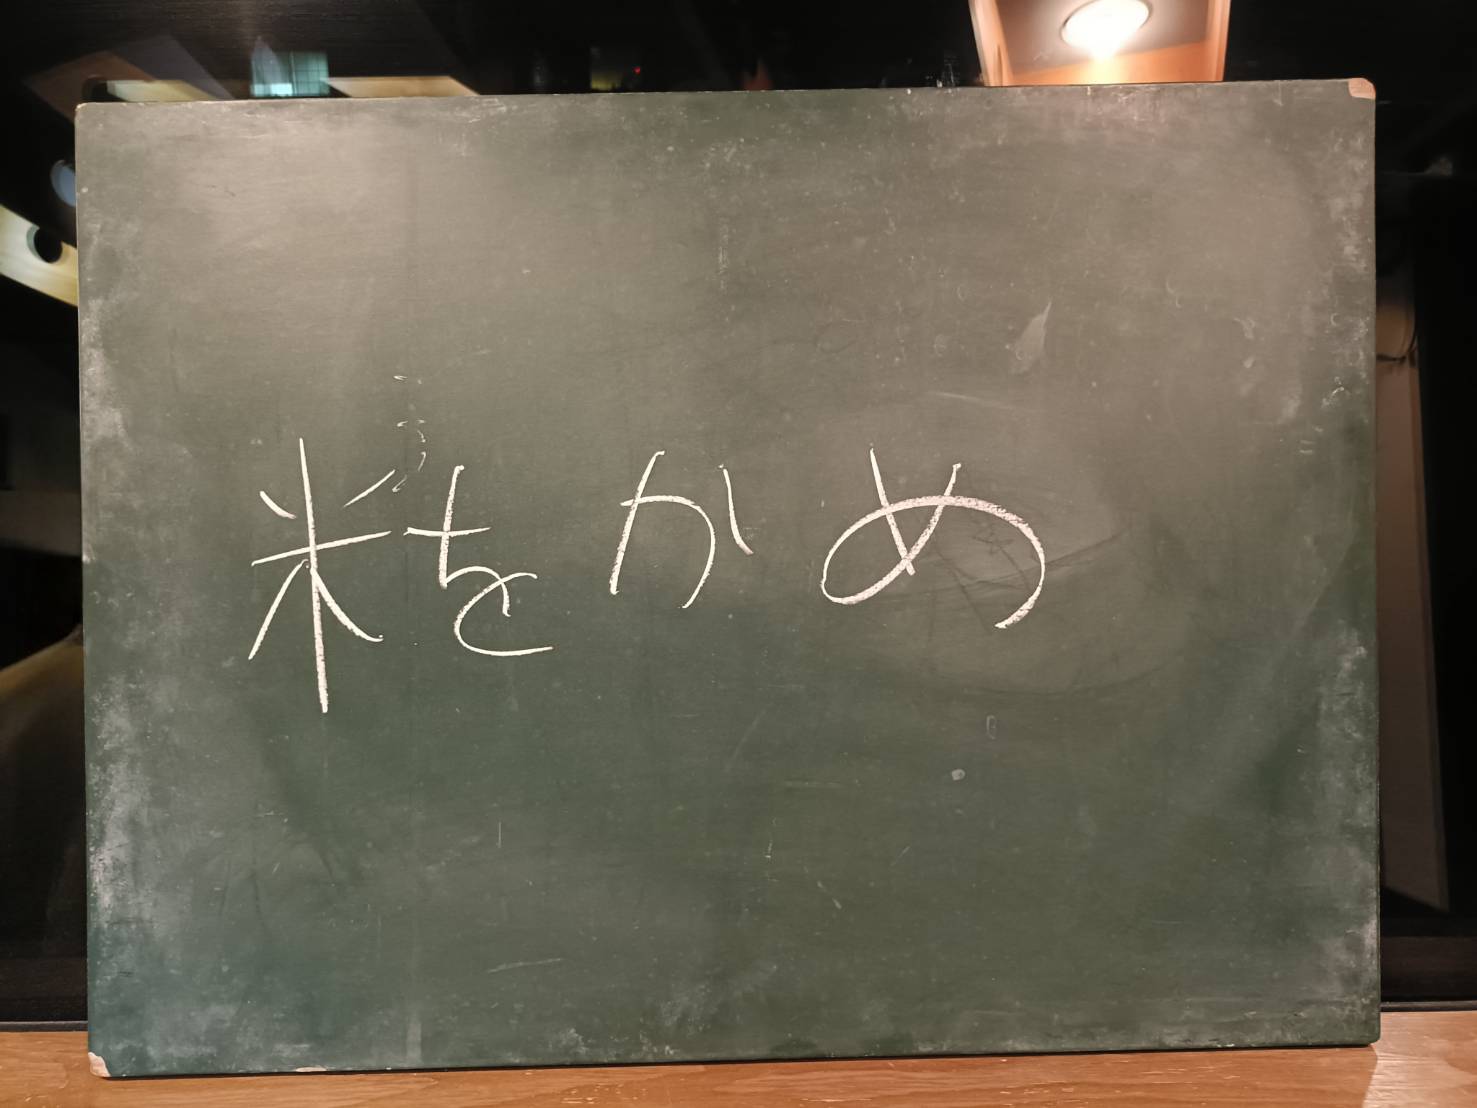 米をかめ